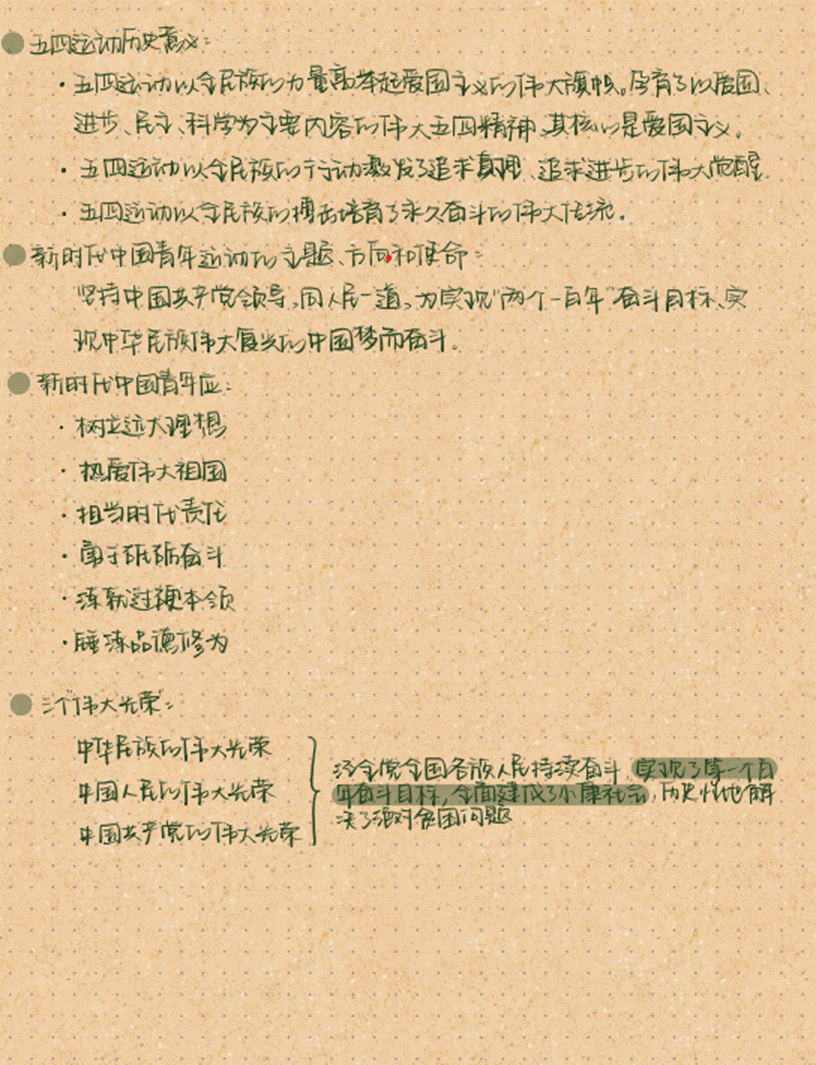 五四运动历史意义：
·五四运动以全民族的力量高举起爱国主义的伟大旗帜。孕育了以爱国、
进步、民主、科学为主要内容的伟大五四精神，其核心是爱国主义。
·五四运动以全民族的行动激发了追求真理、追求进步的伟大觉醒。
·五四运动以全民族的搏击培育了永久奋斗的伟大传统。
新时代中国青年运动的主题、方向和使命：
坚持中国共产党领导，同人民一道，为实现“两个一百年”奋斗目标、实
现中华民族伟大复兴的中国梦而奋斗。
新时代中国青年应：
·树立远大理想
·热爱伟大祖国
·担当时代责任
·勇于砥砺奋斗
·练就过硬本领
·锤炼品德修为
三个“伟大光荣”：
中华民族的伟大光荣
中国人民的伟大光荣
中国共产党的伟大光荣
经全党全国各族人民持续奋斗，实现了第一个百
年奋斗目标，全面建成了小康社会，历史性地解
决了绝对贫困问题